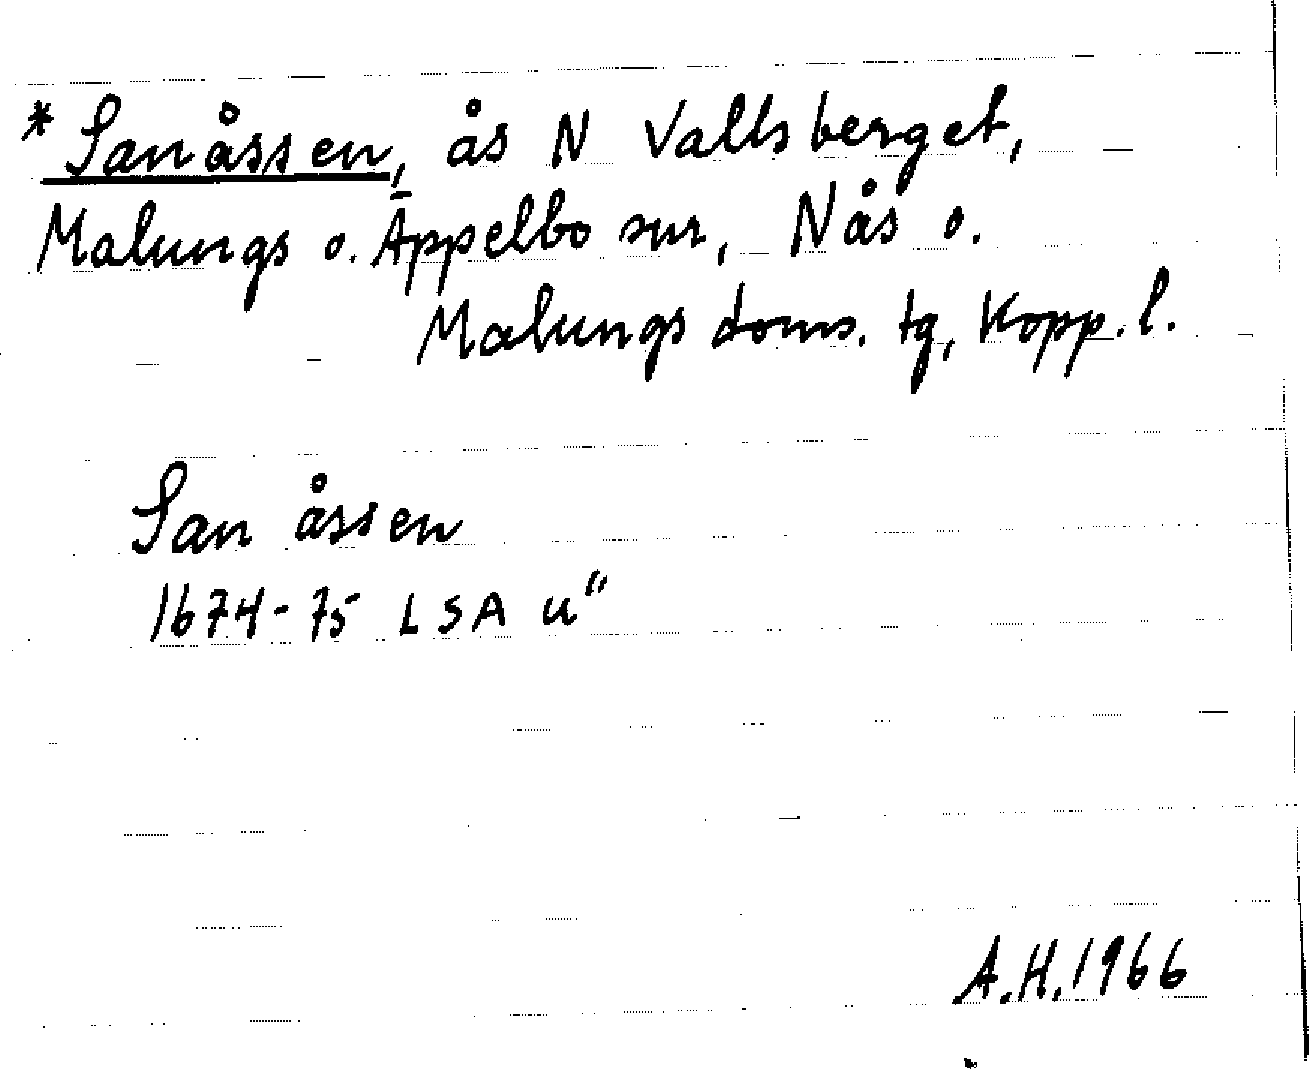 *Sanåssen, ås N Vallsberget,
Malungs o. Äppelbo snr, Nås o.
Malungs doms. tg, Kopp. l.
San åssen
1674-75 LSA U"
A.H. 1966